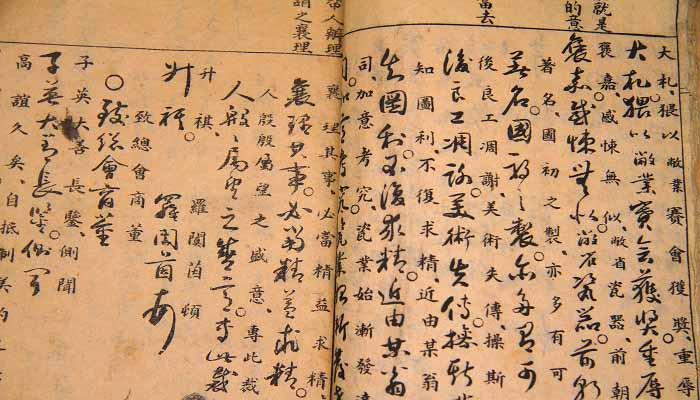 就是
的意
當去
大札猥以敝業賽會獲獎重辱
大札猥以敝業賽會獲獎重辱
褒嘉感悚無似敝省瓷器前朝
褒嘉感悚無似敝省瓷器前朝
著名國初之製亦多有可
著名國初之製亦多有可
後良工凋謝美術失傳操斯
後良工凋謝美術失傳操斯
知圖利不復求精近由某翁
知圖利不復求精近由某翁
司加意考究瓷業始漸發達
人辦理
謂之襄理
襄理其事必當精益求精
襄理其事必當精益求精
人殷殷屬望之盛意專此裁
人殷殷屬望之盛意專此裁
升祺 羅闓茵頓
升祺 羅闓茵頓
致總會商董
致總會商董
子英大善長鑒側聞
子英大善長鑒側聞
高誼久矣自抵制美約